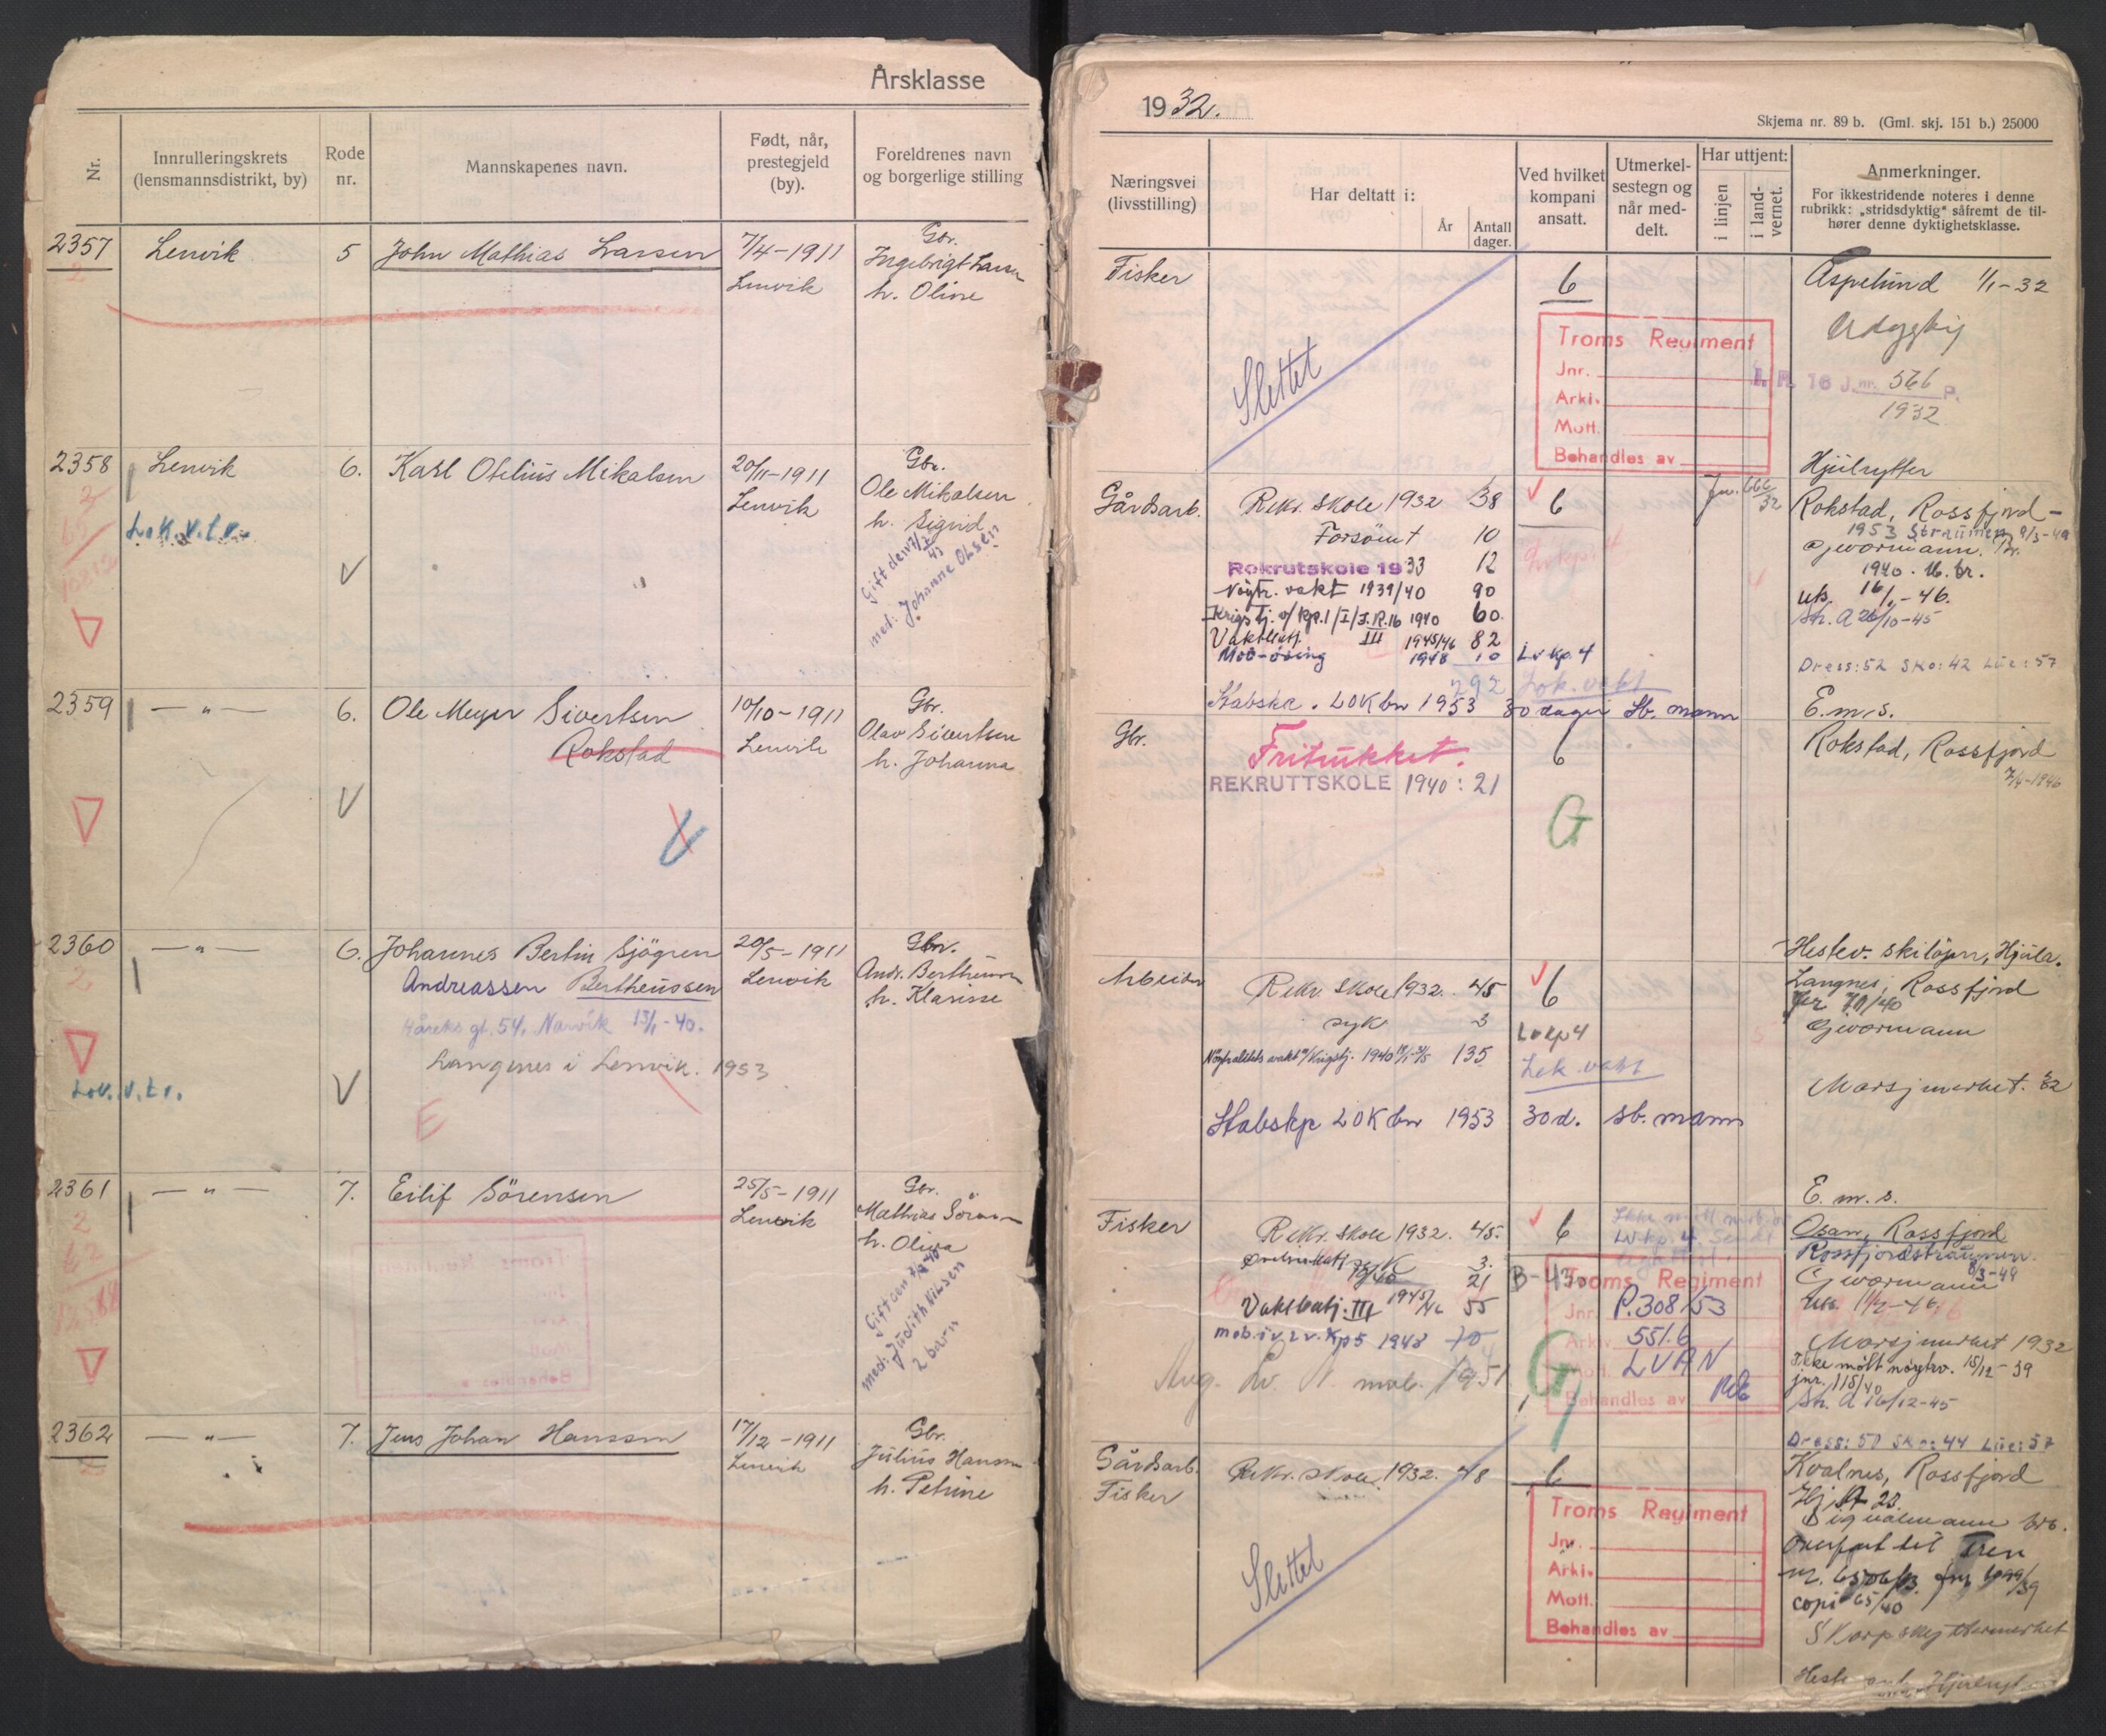 Årsklasse
Nr.
Innrulleringskrets
(lensmannsdistrikt, by)
Rode
nr.
Mannskapenes navn.
Født, når,
prestegjeld
(by).
Foreldrenes navn
og borgerlige stilling
2357
Lenvik
5
John Mathias Larsen
7/4-1911
Lenvik
Gbr.
Ingebrigt Larsen
h. Oline
2358
Lenvik
6.
Karl Otelius Mikalsen
20/11-1911
Lenvik
Gbr.
Ole Mikalsen
h. Sigrid
Gift den
med: Johanne Olsen
Lok.v.t.v.
2359
— " —
6.
Ole Meyer Sivertsen
Rokstad
10/10-1911
Lenvik
Gbr.
Olav Sivertsen
h. Johanna
2360
— " —
6.
Johannes Bertin Sjögren
Andreassen Bertheussen
Håreks gt. 54, Narvik 13/1-40.
Langnes i Lenvik. 1953
E
20/5-1911
Lenvik
Gbr.
Andr. Bertheussen
h. Klarise
Lok.v.t.v.
2361
— " —
7.
Eilif Sörensen
25/5-1911
Lenvik
Gbr.
Mathias Sörensen
h. Oliva
Gift den
med: Judith Nilsen
2 barn
2362
— " —
7.
Jens Johan Hanssen
17/12-1911
Lenvik
Gbr.
Julius Hanssen
h. Petrine
1932.
Skjema nr. 89 b. (Gml. skj. 151 b.) 25000
Næringsvei
(livsstilling)
Har deltatt i:
År
Antall
dager.
Ved hvilket
kompani
ansatt.
Utmerkel-
sestegn og
når med-
delt.
Har uttjent:
i linjen
i land-
vernet.
Anmerkninger.
For ikkestridende noteres i denne
rubrikk: „stridsdyktig" såfremt de til-
hører denne dyktighetsklasse.
Fisker
Slettet
6
Troms Regiment
Jnr.
Arkiv.
Mott.
Behandles av
Aspelund 1/1-32
Udygtig
I. R. 16 J.nr. 566 P.
1932
Hjulrytter
Gårdsarb.
Rekr. skole 1932 38
Forsömt 10
Rekrutskole 1933 12
Nøytr. vakt 1939/40 90
Krigstj. v/ Kp.1/I/I.R.16 1940 60.
Vaktbatj. III 1945/46 82
Mob-öving 1948 10
292
Stabskp. LOK bn 1953 30 dager Sb. mann
6
Lv kp. 4
Lok. vakt
Jnr. 666/32
Rokstad, Rossfjord
1953 Straumen 9/3-49
Gjevormann. Br.
1940. U. br.
uts. 16/1-46.
Sh. A 26/10-45
Dress: 52 Sko: 42 Lue: 57
E.m.s.
Gbr.
Fritukket.
REKRUTTSKOLE 1940: 21
6
G
Rokstad, Rossfjord
7/4-1946
Hestev. skilöper, Hjulr.
Arbeider
Rekr. skole 1932. 45
syk 3
Nøytralitets vakt o/ Krigstj. 1940 135
Stabskp LOK bn 1953 30d. sb. mann
6
Lv kp 4
Lok. vakt
Langnes, Rossfjord
Gjevormann
Marsjmerket. 32
E.m.s.
Fisker
Rekr. skole 1932. 45.
syk 3.
21
Vaktbatj. III 1945/46 55
mob.i v.2v. Kp 5 1948 10
Aug. Lv. mob. 1951
6
B-43
G
Troms Regiment
Jnr. P.308/53
Arkiv 551.6
Mott. LVAN
Behandles av
Osan, Rossfjord
Rossfjordstraumen
8/3-49
Gjevormann
uts. 11/2-46
Marsjmerket 1932
Ikke møtt nøytrv. 15/12-39
jnr. 115/40
Sh. A 16/12-45
Dress: 50 Sko: 44 Lue: 57
Gårdsarb.
Fisker
Rekr. skole 1932. 48
Slettet
6
Troms Regiment
Jnr.
Arkiv.
Mott.
Behandles av
Kvalnes, Rossfjord
Signalmann
Overført til Tren
copi 65/40
Skarpskyttermerket